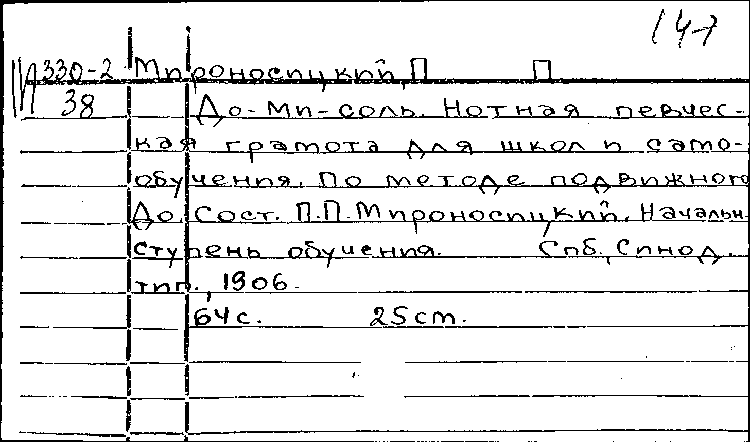 147
330-2 Мироносицкий, П П
38 До-ми-соль. Нотная певчес-
кая грамота для школ и само-
обучения. По методе подвижного
До. Сост. П.П.Мироносицкий. Начальн.
ступень обучения. Спб., Синод.
тип., 1906.
64с. 25cm.